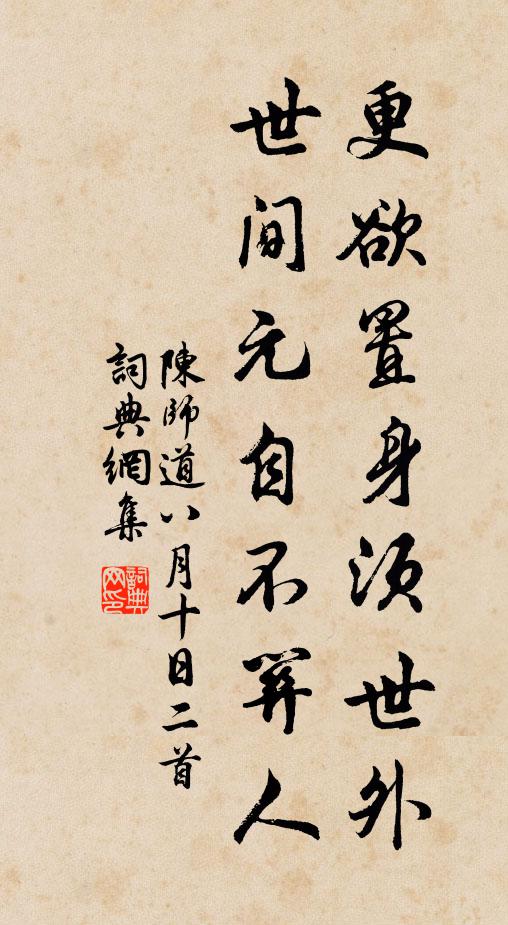 更欲置身須世外
世間元自不關人
陳師道八月十日二首
詞典網集
詞典网印